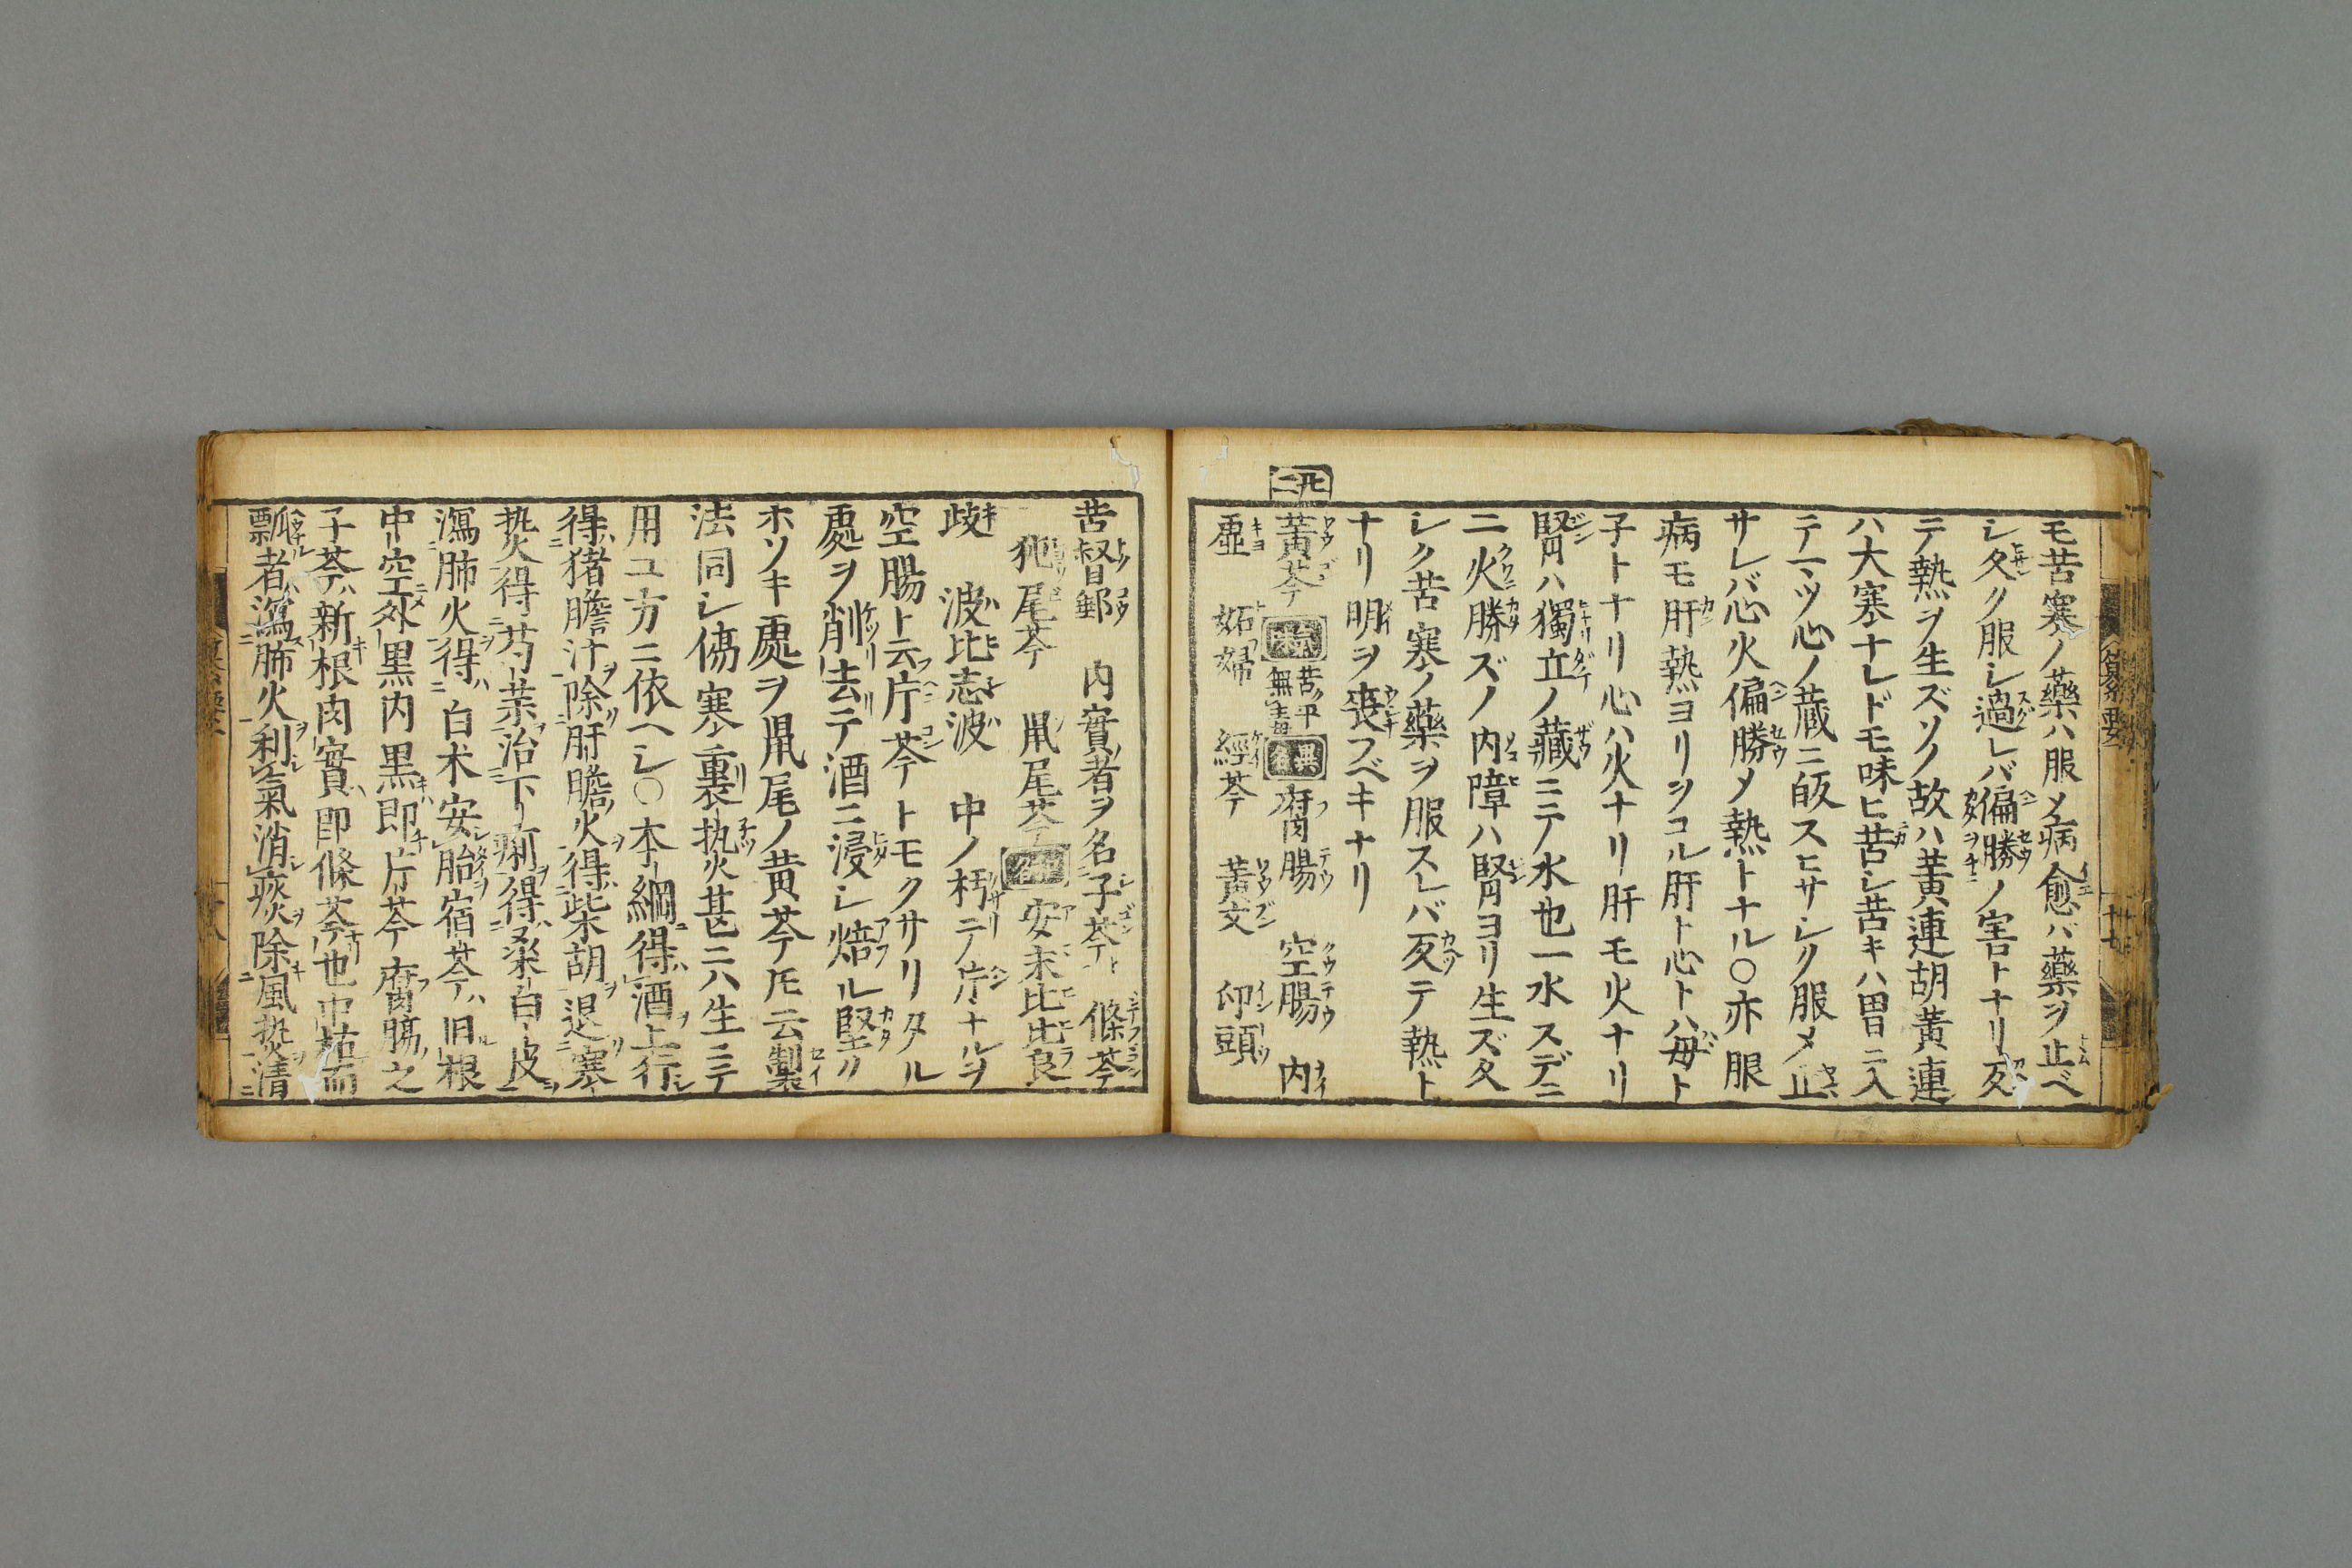 モ苦寒ノ藥ハ服メ病愈バ藥ヲ止ベ
シ久ク服シ過レバ偏勝ノ害トナリ反
テ熱ヲ生ズソノ故ハ黄連胡黄連
ハ大寒ナレドモ味ヒ苦シ苦キハ胃ニ入
テ一ツ心ノ蔵ニ皈スヒサシク服メ止
サレバ心火偏勝メ熱トナル○亦眼
病モ肝熱ヨリヲコル肝ト心トハ母ト
子トナリ心ハ火ナリ肝モ火ナリ
腎ハ獨立ノ藏ニテ水也一水スデニ
二火勝ズノ内障ハ腎ヨリ生ズ久
シク苦寒ノ藥ヲ服スレバ反テ熱ト
ナリ明ヲ喪フベキナリ
黄芩 苦平無毒 腐膓 空膓 内
虚 妬婦 經芩 黄文 印頭
苦督郵 内實者ヲ名子芩ト 條芩
㹠尾芩 鼠尾芩 安末比比良
岐 波比志波 中ノ朽テ片ナルヲ
空腸ト云片芩トモクサリタル
處ヲ削去テ酒ニ浸シ焙ル堅ク
ホソキ處ヲ鼠尾ノ黄芩ト云製
法同シ傷寒重裏热甚ニハ生ニテ
用ユ方ニ依ヘシ○本綱得酒上行
得猪膽汁除肝膽火得柴胡退寒
热得芍藥治下痢得桑白皮
瀉肺火得白朮安胎宿芩ハ旧根
中空外黒内黒即片芩腐膓之
子芩ハ新根肉實即條芩也中枯而
瓢者瀉肺火利氣消痰除風热清